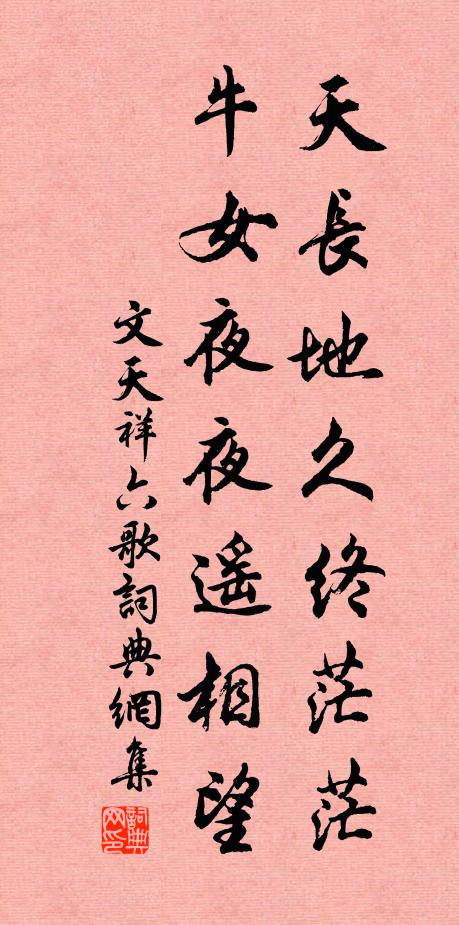 天長地久終茫茫
牛女夜夜遥相望
文天祥六歌詞典網集
詞典网印